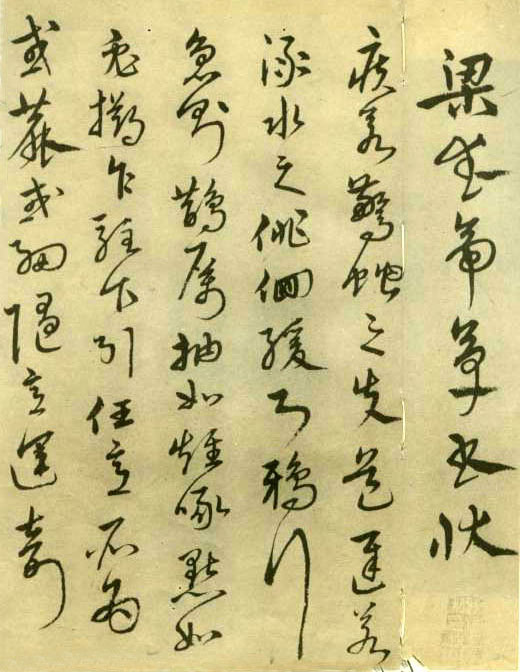 梁武帝草書狀
疾若驚蛇之失道遲若
淥水之徘徊緩則鴉行
急則鵲厲抽如雉啄點如
兔擲乍駐乍引任意所為
或麤或細隨意運奇